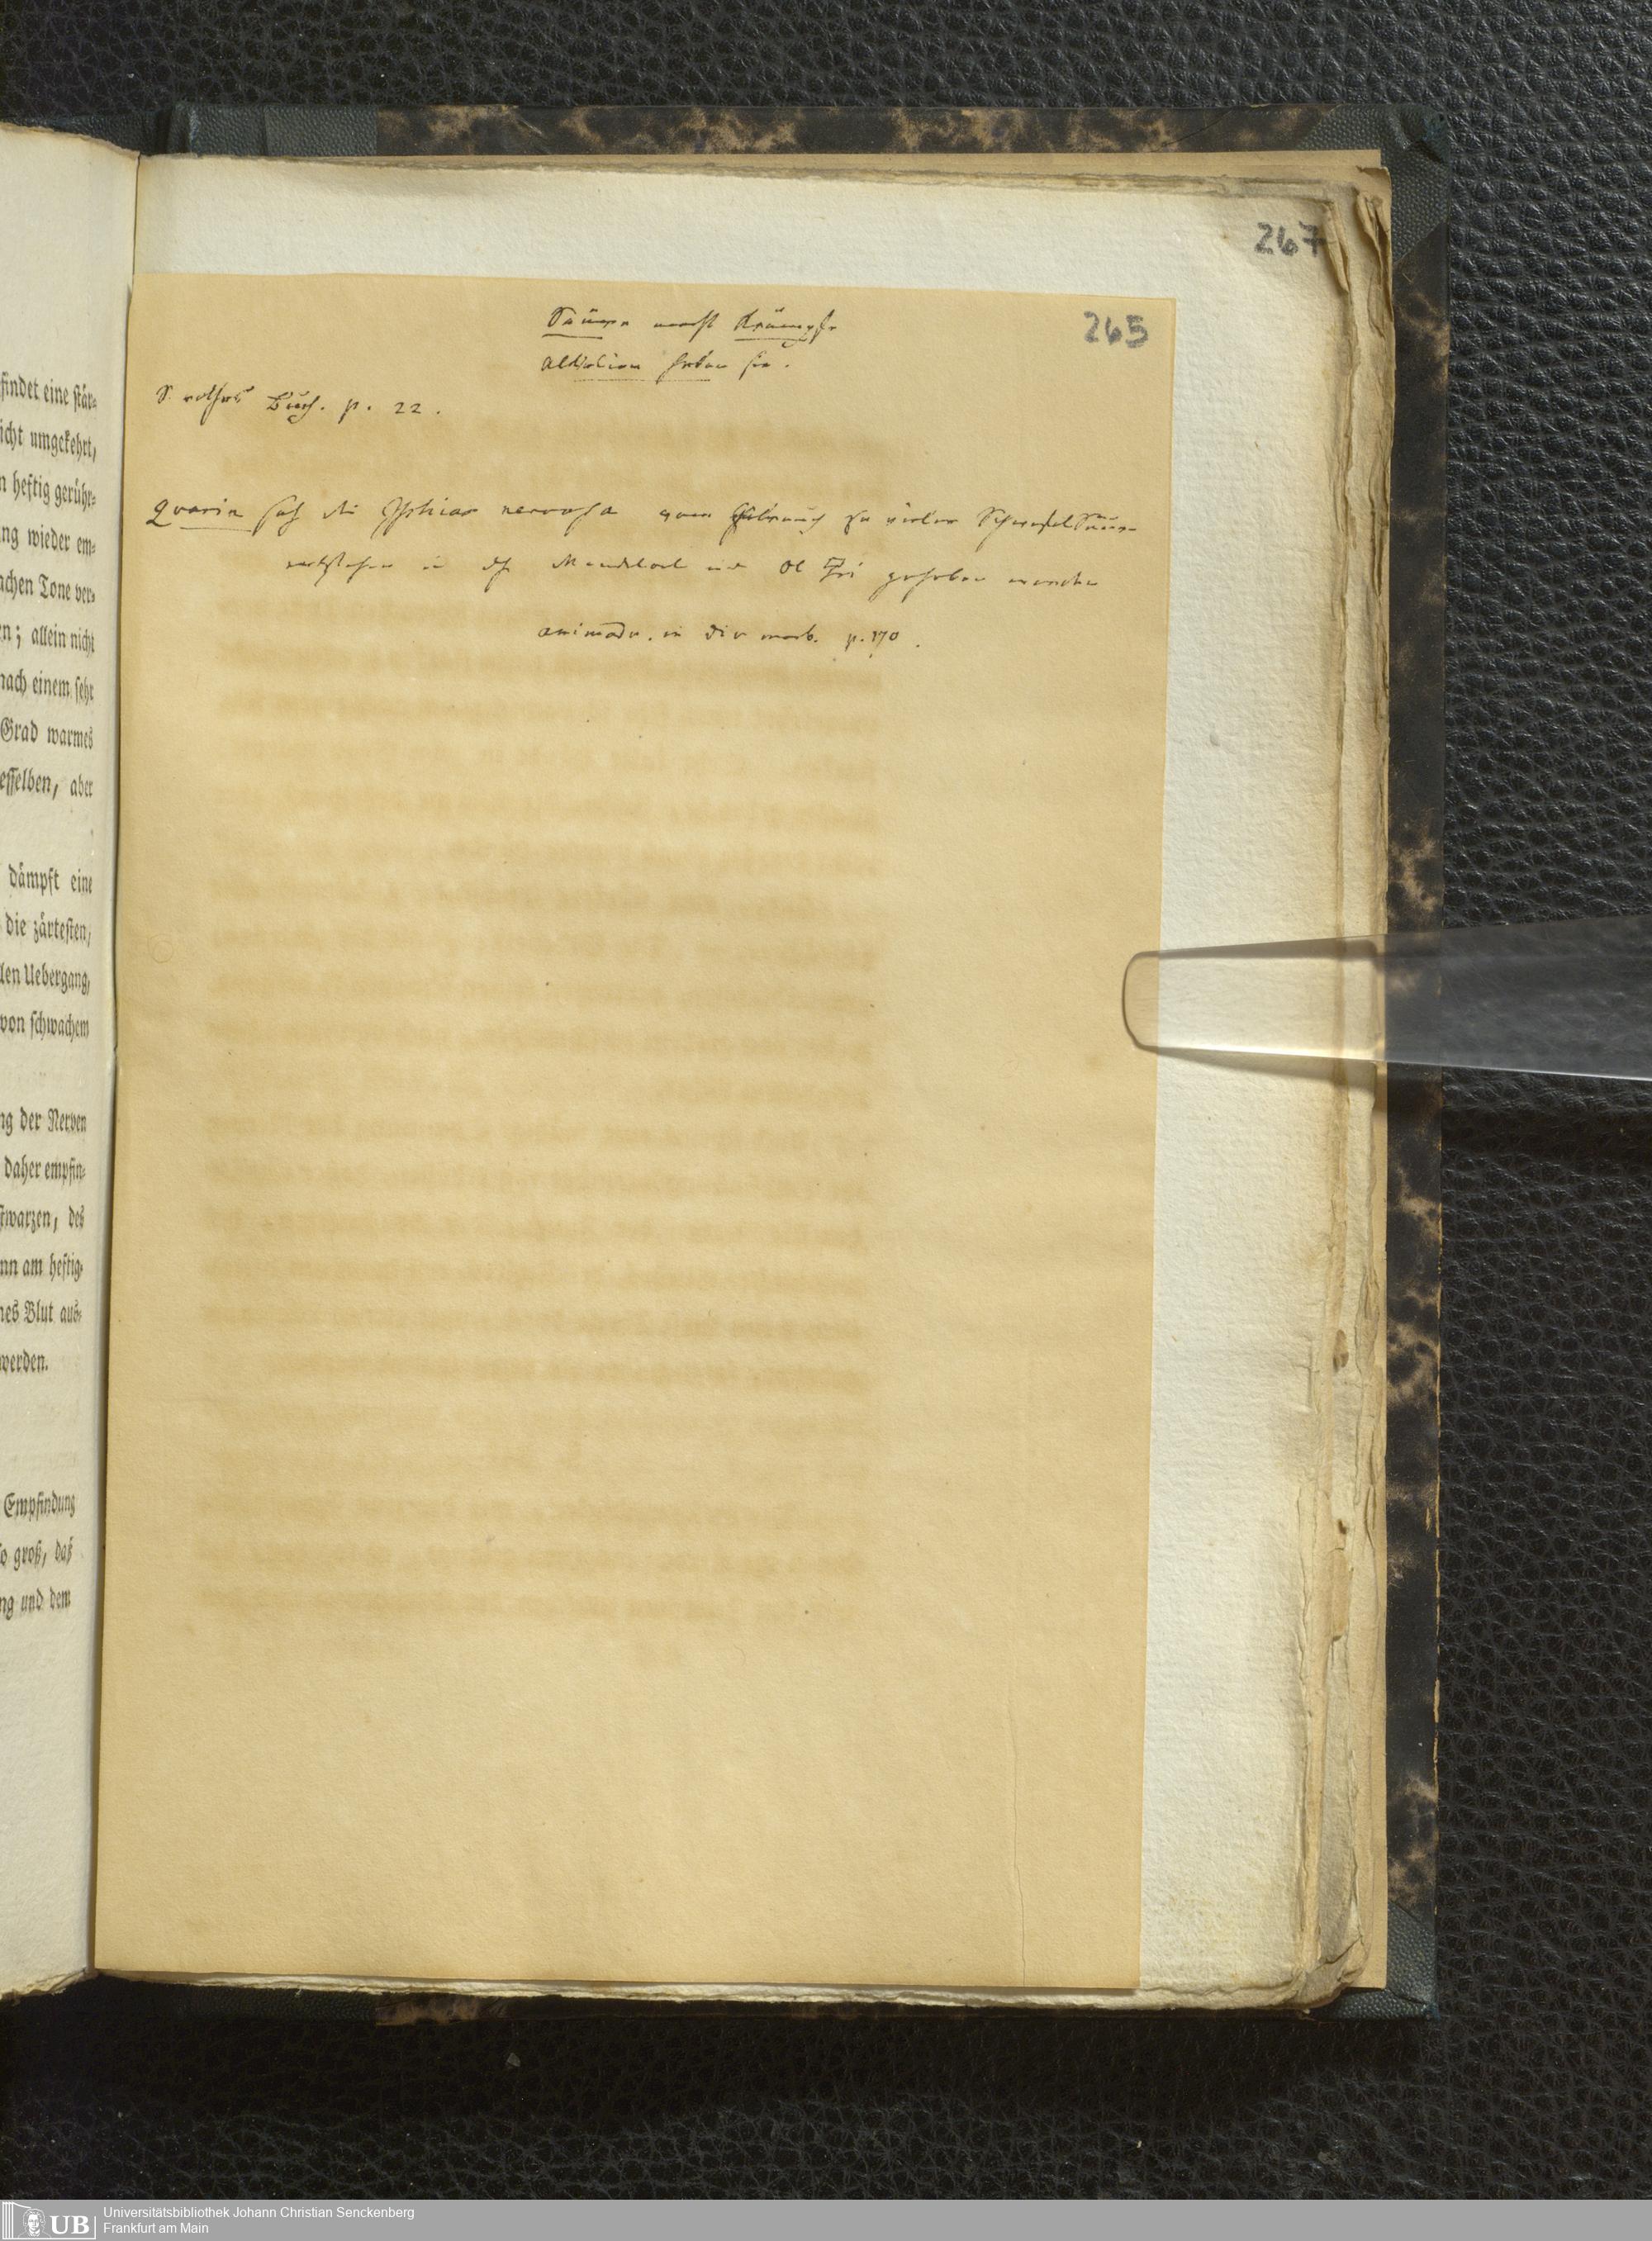 findet eine stär-
icht umgekehrt,
n heftig gerühr-
ng wieder em-
achen Tone ver-
en; allein nicht
nach einem sehr
Grad warmes
esselben, aber
dämpft eine
die zärtesten,
len Uebergang,
von schwachem
ng der Nerven
daher empfin-
stwarzen, des
nn am heftig-
nes Blut aus-
werden.
Empfindung
so groß, daß
ng und dem
267
265
Säure macht Krämpfe
Alkalien heben sie.
S. rothes Buch. p. 22.
Quarin sah die Ischias nervosa vom Gebrauch zu vieler SchwefelSäure
entstehen u. dch Mandeloel und Ol gehoben werden
animadv. in div morb. p. 170.
UB Universitätsbibliothek Johann Christian Senckenberg
Frankfurt am Main